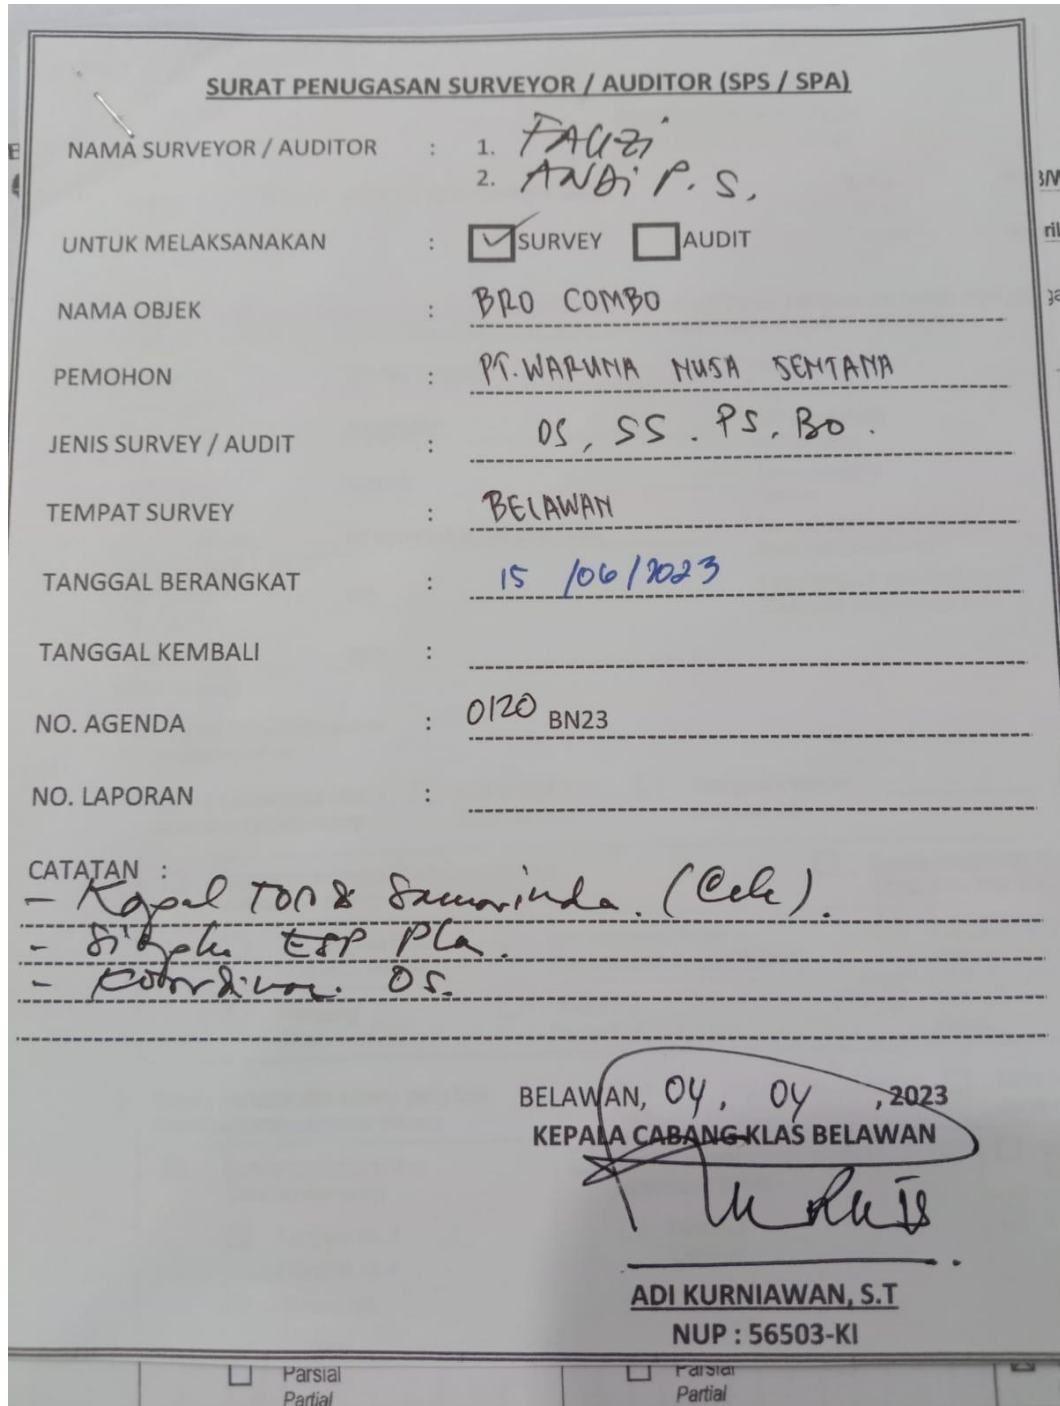 SURAT PENUGASAN SURVEYOR / AUDITOR (SPS / SPA)
NAMA SURVEYOR / AUDITOR : 1. FAUZI
2. ANDI P. S.
UNTUK MELAKSANAKAN : SURVEY AUDIT
NAMA OBJEK : BRO COMBO
PEMOHON : PT. WARUNA NUSA SENTANA
JENIS SURVEY / AUDIT : OS, SS. PS, BO.
TEMPAT SURVEY : BELAWAN
TANGGAL BERANGKAT : 15 /06/2023
TANGGAL KEMBALI :
NO. AGENDA : 0120 BN23
NO. LAPORAN :
CATATAN :
- Kapal Samarinda.
- ESP
- OS.
BELAWAN, 04, 04, 2023
KEPALA CABANG KLAS BELAWAN
ADI KURNIAWAN, S.T
NUP : 56503-KI
Parsial Parsial
Partial Partial